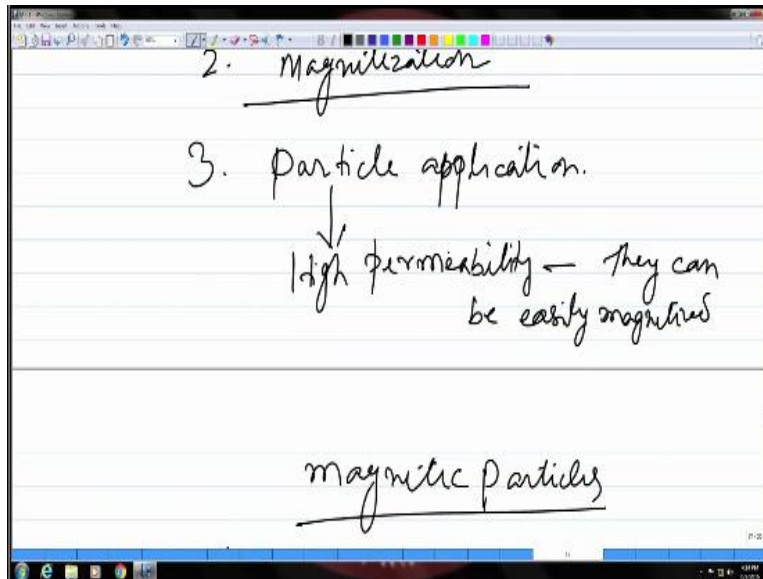 2. Magnitization
3. Particle application.
High permeability — They can
be easily magnitized
magnitic Particles